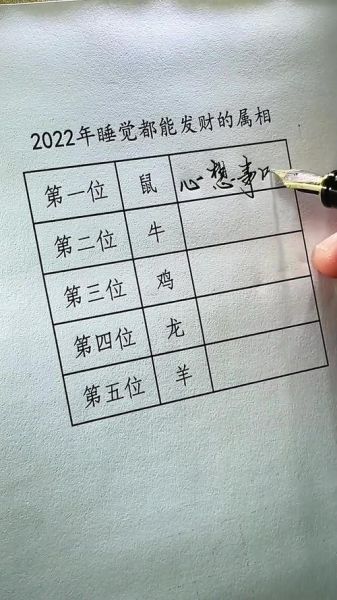 2022年睡觉都能发财的属相
第一位 鼠 心想事
第二位 牛
第三位 鸡
第四位 龙
第五位 羊